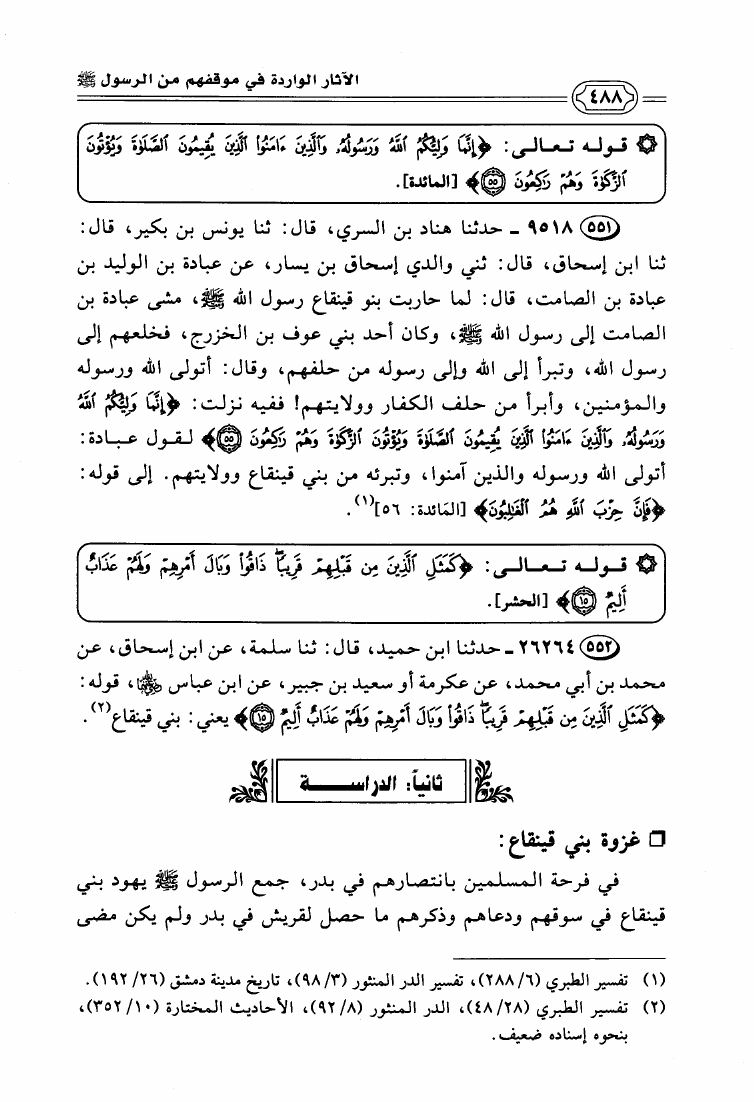 الآثار الواردة في موقفهم من الرسول ﷺ
٤٨٨
۞ قوله تعالى: ﴿إِنَّمَا وَلِيُّكُمُ ٱللَّهُ وَرَسُولُهُۥ وَٱلَّذِينَ ءَامَنُوا۟ ٱلَّذِينَ يُقِيمُونَ ٱلصَّلَوٰةَ وَيُؤْتُونَ
ٱلزَّكَوٰةَ وَهُمْ رَٰكِعُونَ ۝٥٥﴾ [المائدة].
(٥٥١) ٩٥١٨ ـ حدثنا هناد بن السري، قال: ثنا يونس بن بكير، قال:
ثنا ابن إسحاق، قال: ثني والدي إسحاق بن يسار، عن عبادة بن الوليد بن
عبادة بن الصامت، قال: لما حاربت بنو قينقاع رسول الله ﷺ، مشى عبادة بن
الصامت إلى رسول الله ﷺ، وكان أحد بني عوف بن الخزرج، فخلعهم إلى
رسول الله، وتبرأ إلى الله وإلى رسوله من حلفهم، وقال: أتولى الله ورسوله
والمؤمنين، وأبرأ من حلف الكفار وولايتهم! ففيه نزلت: ﴿إِنَّمَا وَلِيُّكُمُ ٱللَّهُ
وَرَسُولُهُۥ وَٱلَّذِينَ ءَامَنُوا۟ ٱلَّذِينَ يُقِيمُونَ ٱلصَّلَوٰةَ وَيُؤْتُونَ ٱلزَّكَوٰةَ وَهُمْ رَٰكِعُونَ ۝٥٥﴾ لقول عبادة:
أتولى الله ورسوله والذين آمنوا، وتبرئه من بني قينقاع وولايتهم. إلى قوله:
﴿فَإِنَّ حِزْبَ ٱللَّهِ هُمُ ٱلْغَٰلِبُونَ﴾ [المائدة: ٥٦](١).
۞ قوله تعالى: ﴿كَمَثَلِ ٱلَّذِينَ مِن قَبْلِهِمْ قَرِيبًا ۖ ذَاقُوا۟ وَبَالَ أَمْرِهِمْ وَلَهُمْ عَذَابٌ
أَلِيمٌ ۝١٥﴾ [الحشر].
(٥٥٢) ٢٦٢٦٤ ـ حدثنا ابن حميد، قال: ثنا سلمة، عن ابن إسحاق، عن
محمد بن أبي محمد، عن عكرمة أو سعيد بن جبير، عن ابن عباس رضي الله عنهما، قوله:
﴿كَمَثَلِ ٱلَّذِينَ مِن قَبْلِهِمْ قَرِيبًا ۖ ذَاقُوا۟ وَبَالَ أَمْرِهِمْ وَلَهُمْ عَذَابٌ أَلِيمٌ ۝١٥﴾ يعني: بني قينقاع(٢).
ثانياً: الدراســـــة
❒ غزوة بني قينقاع:
في فرحة المسلمين بانتصارهم في بدر، جمع الرسول ﷺ يهود بني
قينقاع في سوقهم ودعاهم وذكرهم ما حصل لقريش في بدر ولم يكن مضى
(١) تفسير الطبري (٦/ ٢٨٨)، تفسير الدر المنثور (٣/ ٩٨)، تاريخ مدينة دمشق (٢٦/ ١٩٢).
(٢) تفسير الطبري (٢٨/ ٤٨)، الدر المنثور (٨/ ٩٢)، الأحاديث المختارة (١٠/ ٣٥٢)،
بنحوه إسناده ضعيف.